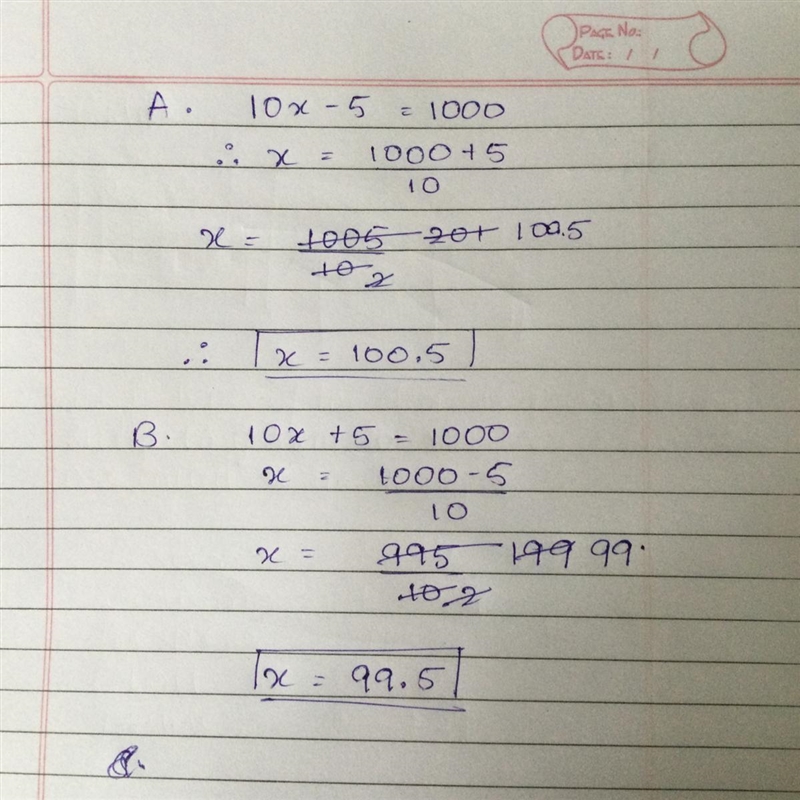 PAGE No:
DATE: / /
A. 10x - 5 = 1000
∴ x = 1000 + 5
10
x = 1005 201 100.5
10 2
∴ x = 100.5
B. 10x + 5 = 1000
x = 1000 - 5
10
x = 995 199 99.
10 2
x = 99.5